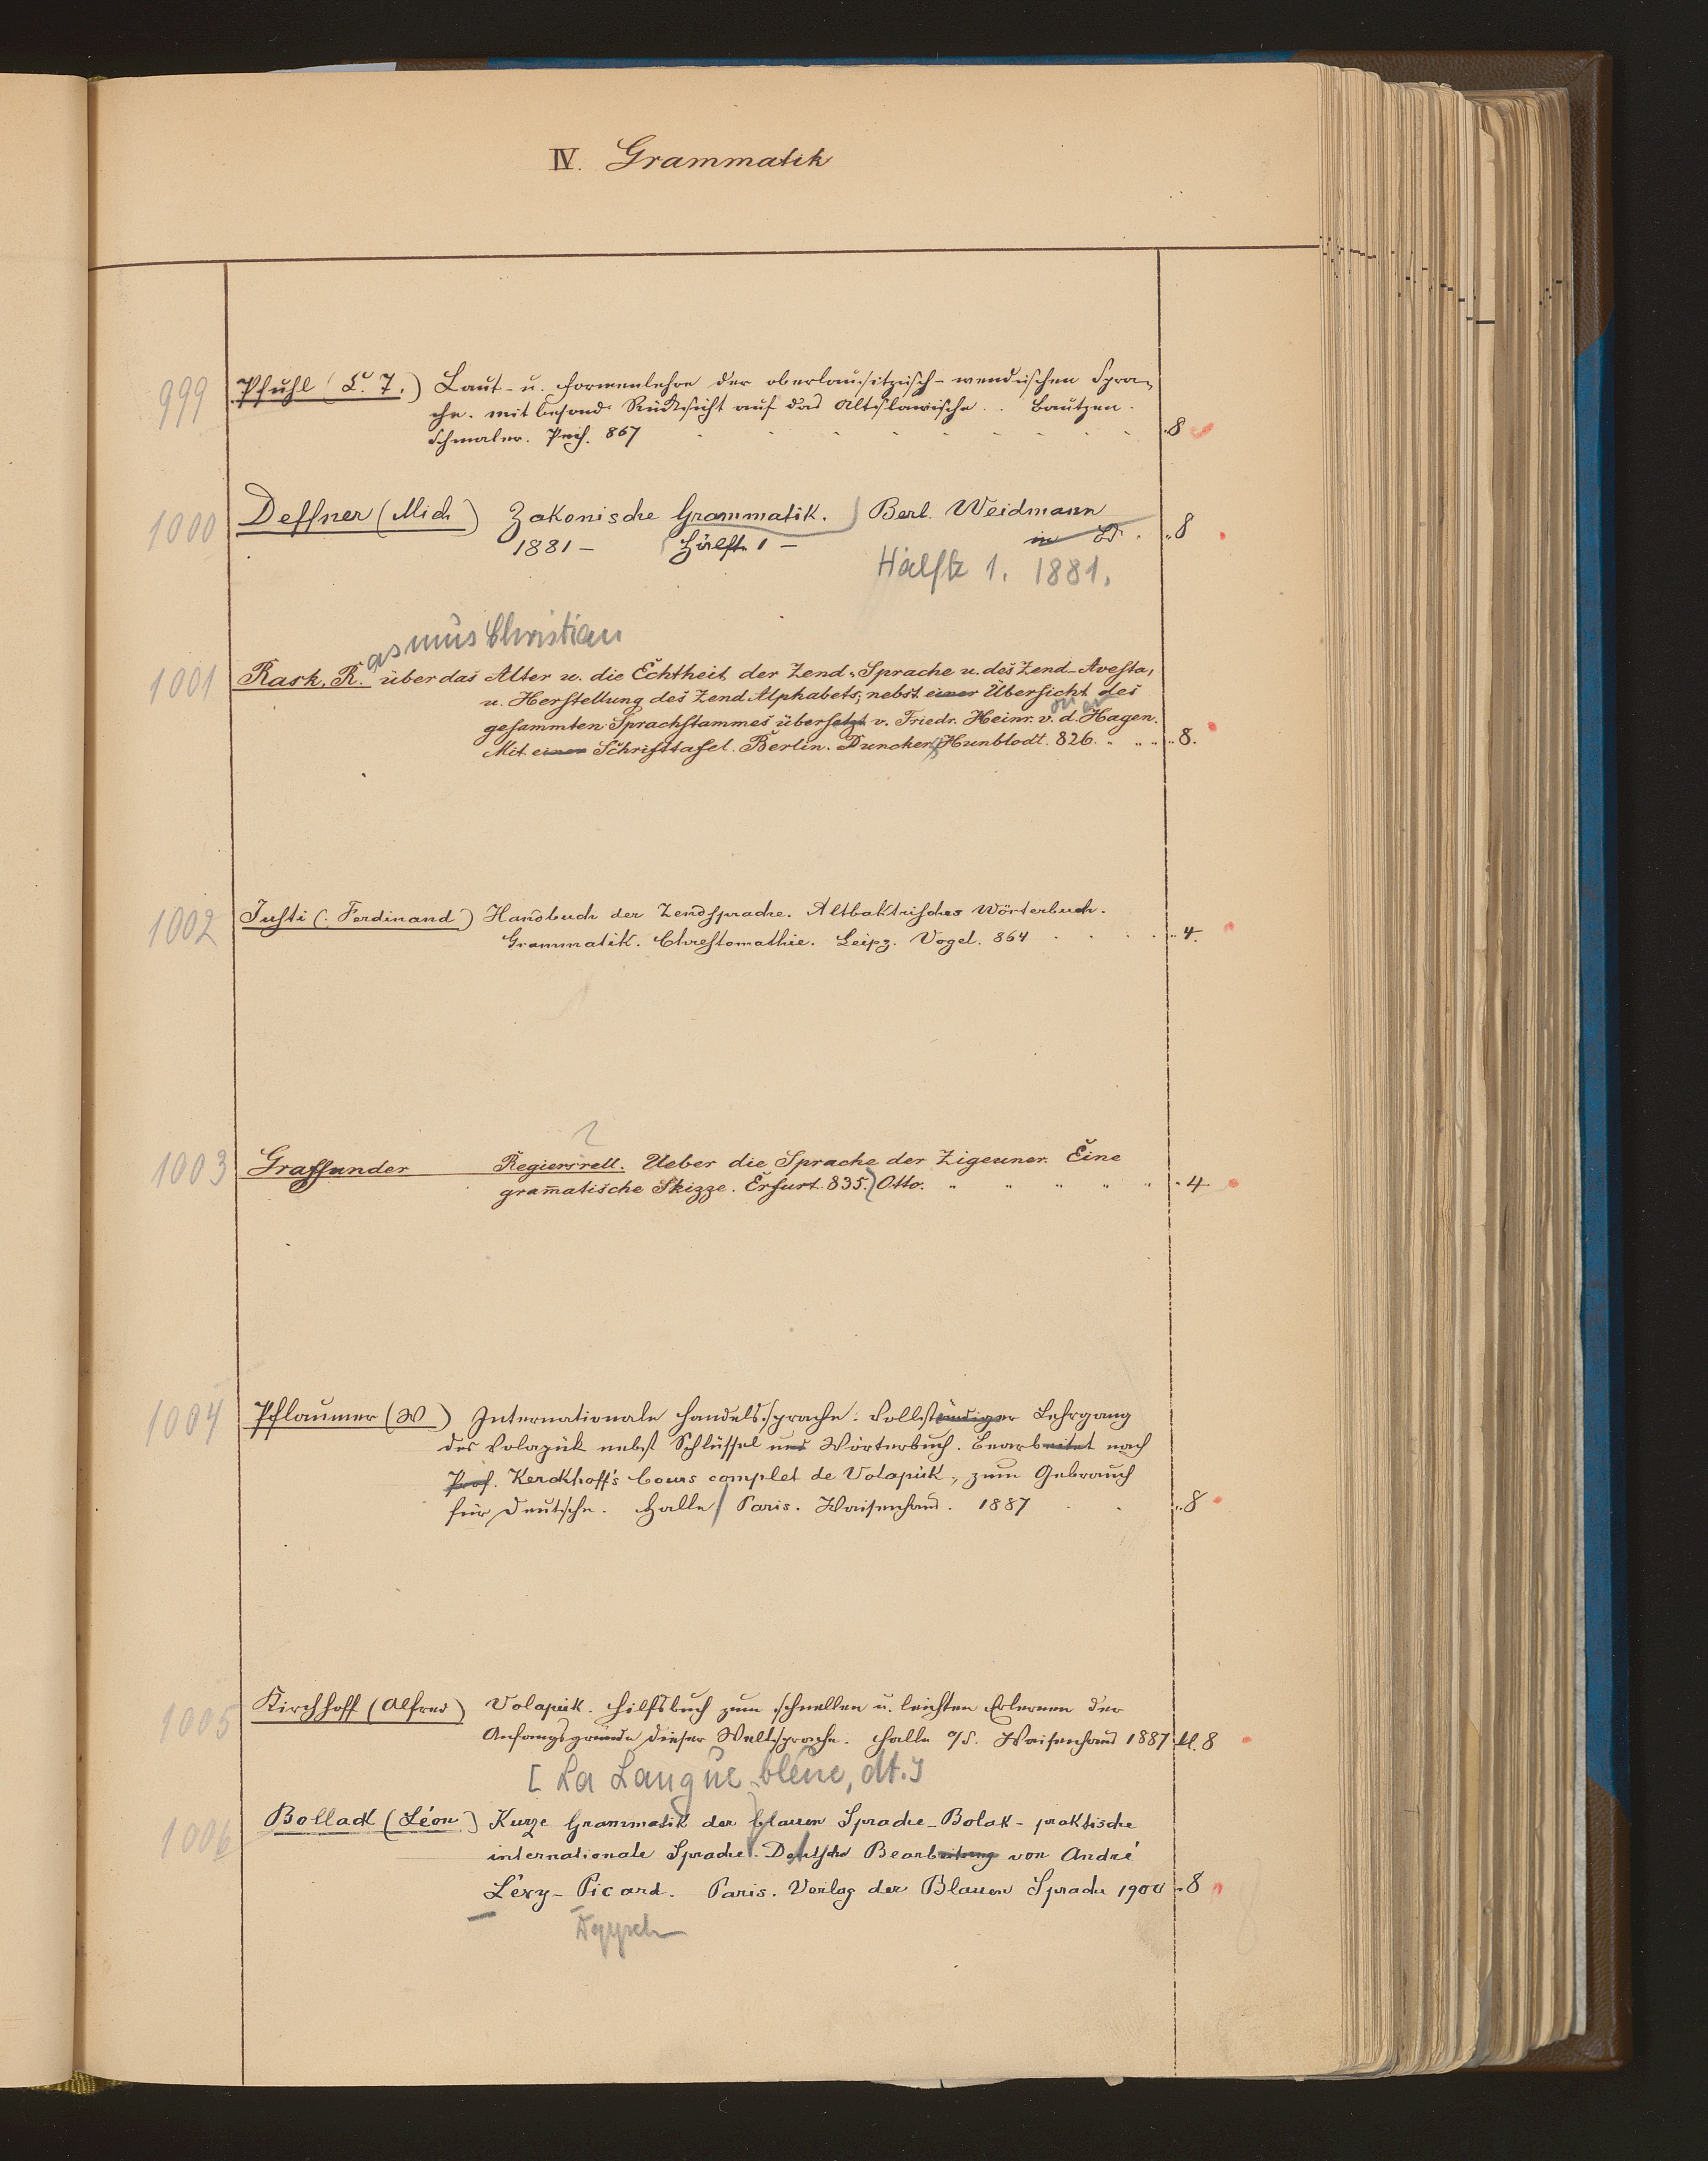 IV. Grammatik
999 Pfuhl (C. T.) Laut- u. Formenlehre der oberlausitzisch-wendischen Spra-
che. mit besond. Rücksicht auf das Altslawische. . Bautzen.
Schmaler. Pech. 867 8
1000 Deffner (Mich) Zakonische Grammatik. Berl. Weidmann
1881 – Hälfte 1 – in Bd. 8
Hälfte 1. 1881.
asmus Christian
1001 Rask, R. über das Alter u. die Echtheit der Zend-Sprache u. des Zend-Avesta,
u. Herstellung des Zend Alphabets, nebst einer Übersicht des
on er
gesammten Sprachstammes übersetzt v. Friedr. Heinr. v. d. Hagen.
Mit einer Schrifttafel. Berlin. Duncker, Humblodt. 826. 8.
1002 Justi (: Ferdinand) Handbuch der Zendsprache. Altbaktrisches Wörterbuch.
Grammatik. Chrestomathie. Leipz. Vogel. 864 4.
1003 Graffunder Regiersrell. Ueber die Sprache der Zigeuner. Eine
gram̄atische Skizze. Erfurt. 835. Otto. 4
1004 Pflaumer (W) Internationale Handelssprache. Vollständiger Lehrgang
des Volapük nebst Schlüssel und Wörterbuch. Bearbeitet nach
Prof. Kerckhoff's Cours complet de Volapük, zum Gebrauch
für Deutsche. Halle / Paris. Waisenhaus. 1887 8
1005 Kirchhoff (Alfred) Volapük. Hilfsbuch zum schnellen u. leichten Erlernen der
Anfangsgründe dieser Weltsprache. Halle a/S. Waisenhaus 1887 kl. 8
[La Langue bleue, dt.]
1006 Bollack (Léon) Kurze Grammatik der blauen Sprache - Bolak - praktische
internationale Sprache. Deutsche Bearbeitung von André
Lévy-Picard. Paris. Verlag der Blauen Sprache 1900 8